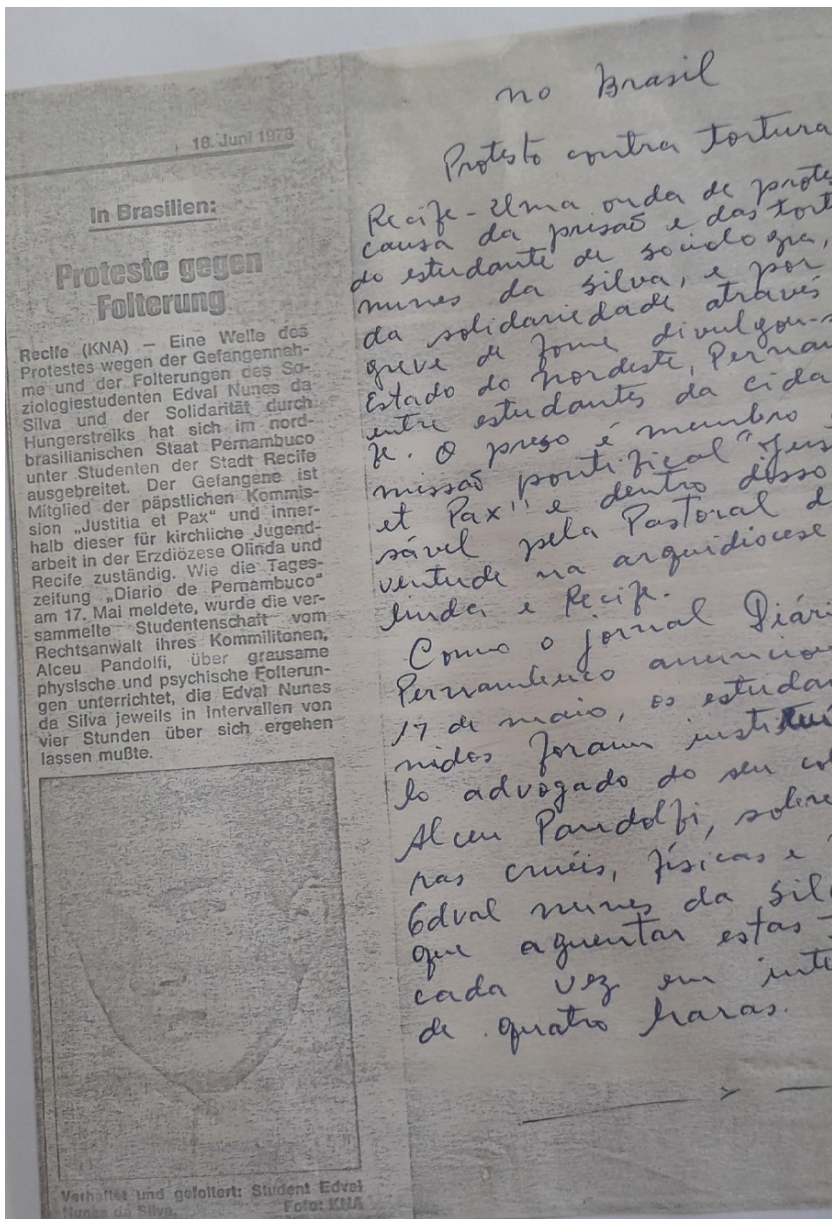 16. Juni 1978
In Brasilien:
Proteste gegen
Folterung
Recife (KNA) — Eine Welle des
Protestes wegen der Gefangennah-
me und der Folterungen des So-
ziologiestudenten Edval Nunes da
Silva und der Solidarität durch
Hungerstreiks hat sich im nord-
brasilianischen Staat Pernambuco
unter Studenten der Stadt Recife
ausgebreitet. Der Gefangene ist
Mitglied der päpstlichen Kommis-
sion „Justitia et Pax" und inner-
halb dieser für kirchliche Jugend-
arbeit in der Erzdiözese Olinda und
Recife zuständig. Wie die Tages-
zeitung „Diario de Pernambuco"
am 17. Mai meldete, wurde die ver-
sammelte Studentenschaft vom
Rechtsanwalt ihres Kommilitonen,
Alceu Pandolfi, über grausame
physische und psychische Folterun-
gen unterrichtet, die Edval Nunes
da Silva jeweils in Intervallen von
vier Stunden über sich ergehen
lassen mußte.
Verhaftet und gefoltert: Student Edval
Nunes da Silva. Foto: KNA
no Brasil
Protesto contra tortura
Recife - Uma onda de prote
causa da prisaõ e das tort
do estudante de sociologia,
nunes da silva, e por
da solidariedade através
greve de fome divulgou-s
Estado do nordeste, Pernam
entre estudantes da cida
fe. O preso é membro
missaõ pontifical "Jus
et Pax" e dentro disso
sável pela Pastoral d
ventude na arquidiocese
linda e Recife.
Como o jornal Diári
Pernambuco anunciou
17 de maio, os estudan
nidos foram instrui
lo advogado do seu col
Alceu Pandolfi, sobre
ras cruéis, físicas e
Edval nunes da sil
que aguentar estas
cada vez em inte
de quatro horas.